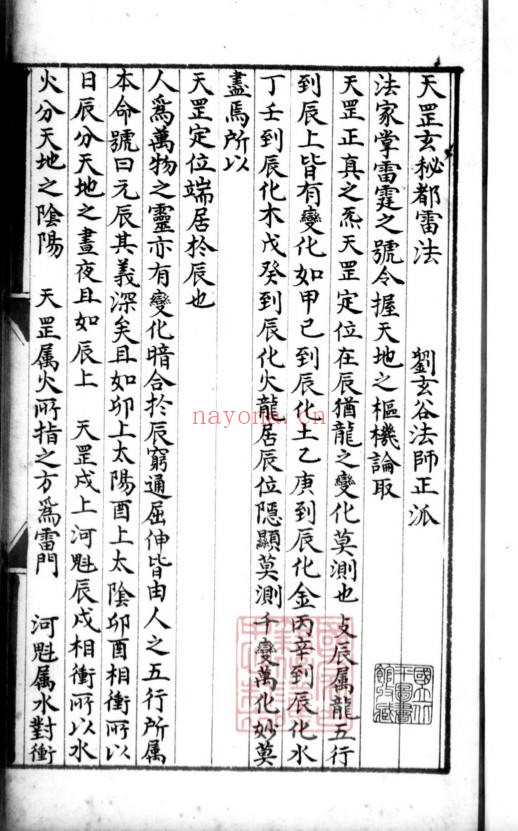 天罡玄秘都雷法　劉玄谷法師正派
法家掌雷霆之號令握天地之樞機論取
天罡正真之炁天罡定位在辰猶龍之變化莫測也攴辰属龍五行
到辰上皆有變化如甲己到辰化土乙庚到辰化金丙辛到辰化水
丁壬到辰化木戊癸到辰化火龍居辰位隱顯莫測千變萬化妙莫
盡焉所以
天罡定位端居於辰也
人爲萬物之靈亦有變化暗合於辰窮通屈伸皆由人之五行所属
本命號曰元辰其義深矣且如卯上太陽酉上太陰卯酉相衝所以
日辰分天地之晝夜且如辰上　天罡戌上河魁辰戌相衝所以水
火分天地之陰陽　天罡属火所指之方爲雷門　河魁属水對衝
國立北
平圖書
館收藏
nayona.cn